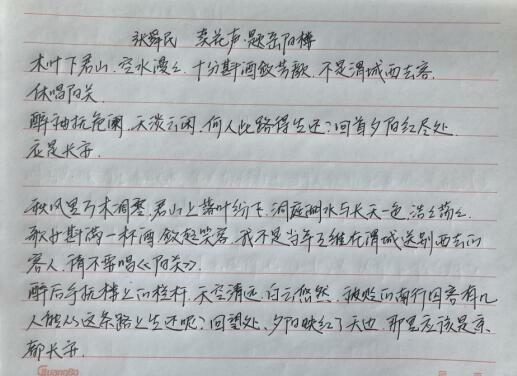 张舜民 卖花声·题岳阳楼
木叶下君山.空水漫々.十分斟酒敛芳颜.不是渭城西去客.
休唱阳关.
醉袖抚危阑.天淡云闲.何人此路得生还?回首夕阳红尽处.
应是长安.
秋风里万木凋零.君山上落叶纷飞.洞庭湖水与长天一色.浩々荡々.
歌女斟满一杯酒敛起笑容.我不是当年王维在渭城送别西去的
客人.请不要唱《阳关》.
醉后手抚楼上的栏杆.天空清远.白云悠然.被贬的南行囚客有几
人能从这条路上生还呢?回望处.夕阳映红了天边.那里应该是京
都长安.
GuangBo